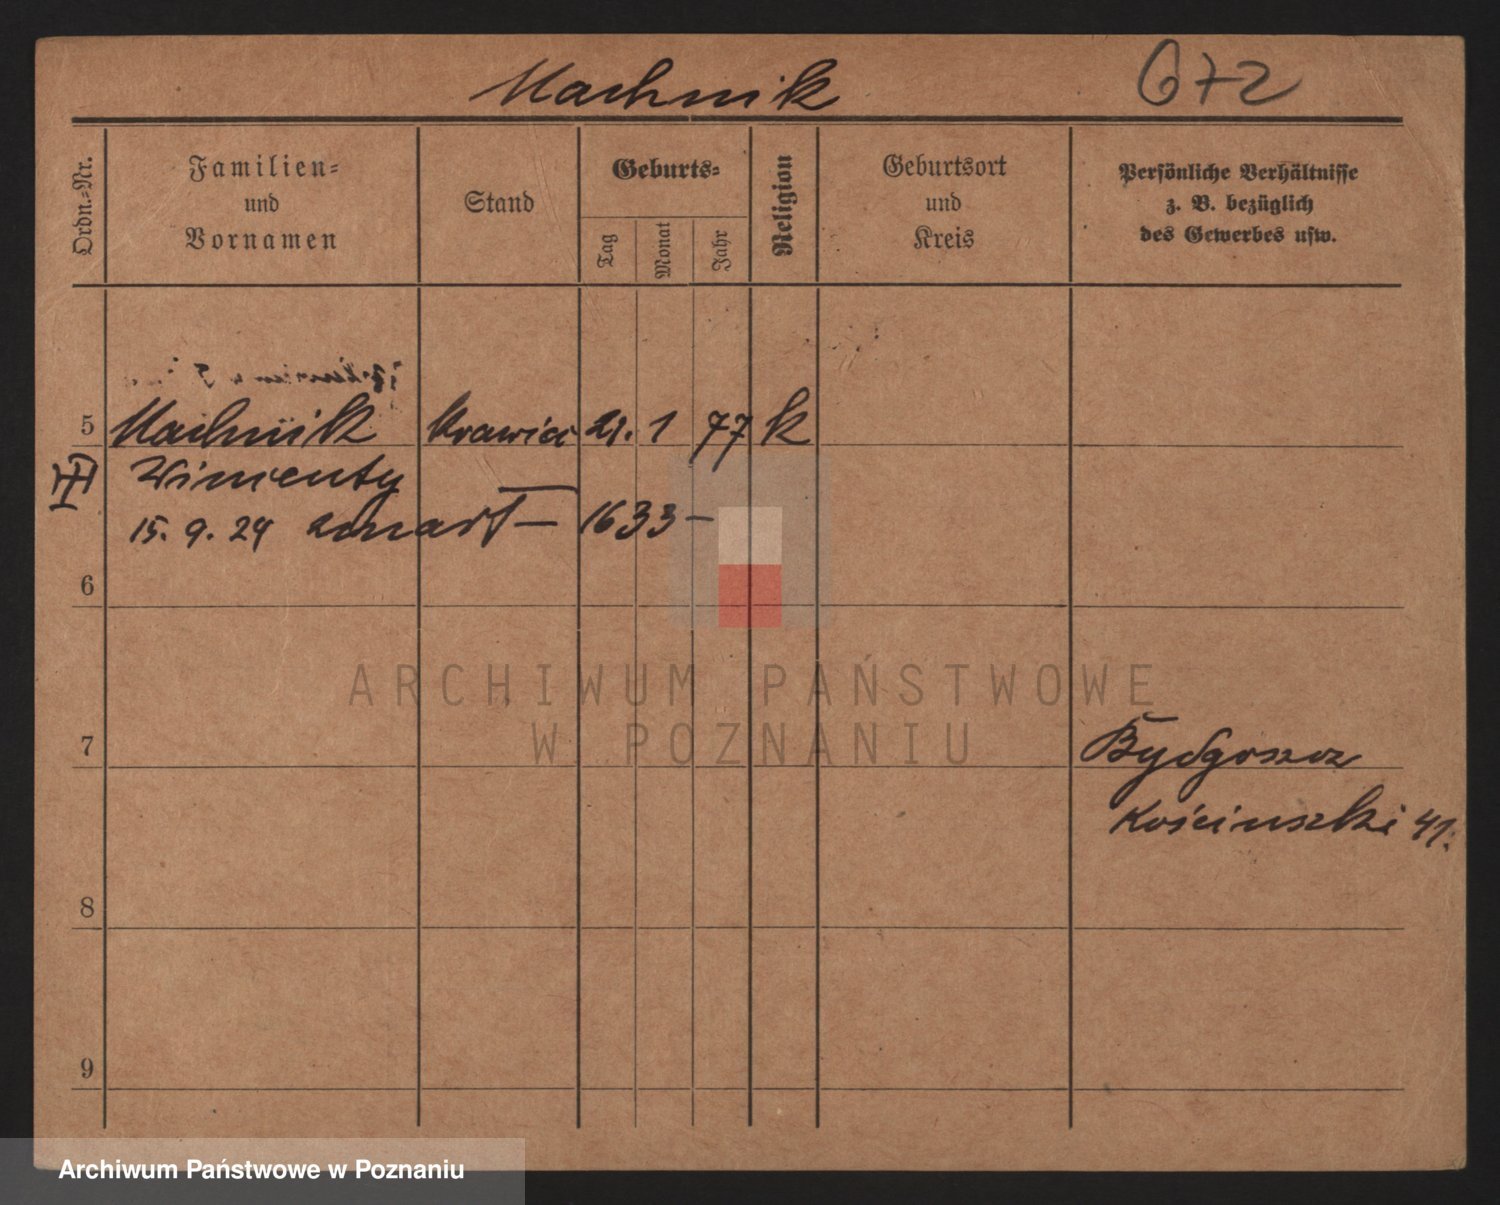 Machnik
672
Ordn.=Nr.
Familien=
und
Vornamen
Stand
Geburts=
Tag
Monat
Jahr
Religion
Geburtsort
und
Kreis
Persönliche Verhältnisse
z. B. bezüglich
des Gewerbes usw.
5 Machnik Krawiec 21. 1 77 k
Wincenty
15. 9. 24 zmarł — 1633 —
6
ARCHIWUM PAŃSTWOWE
W POZNANIU
7 Bydgoszcz
Kościuszki 41.
8
9
Archiwum Państwowe w Poznaniu